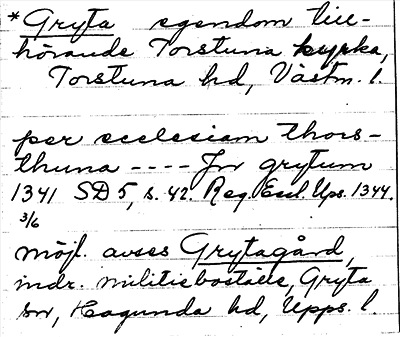 *Gryta egendom till-
hörande Torstuna kyrka,
Torstuna hd, Västm. l.
per ecclesiam thors-
thuna ---- Jn grytum
1341 SD 5, s. 42. Reg. Eccl. Ups. 1344.
3/6
möjl. avses Grytagård,
indr. militieboställe, Gryta
sn, Hagunda hd, Upps. l.